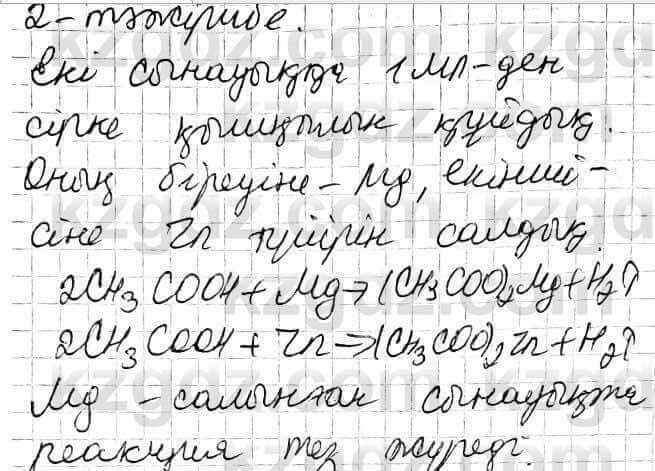 2-тәжірибе.
Екі сынауыққа 1 мл-ден
сірке қышқылын құйдық.
Оның біреуіне - Mg, екінші-
сіне Zn түйірін салдық.
2CH₃COOH + Mg → (CH₃COO)₂Mg + H₂↑
2CH₃COOH + Zn → (CH₃COO)₂Zn + H₂↑
Mg - салынған сынауықта
реакция тез жүреді.